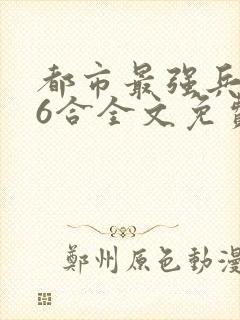 都市最强兵
6合全文免費
鄭州原色動漫